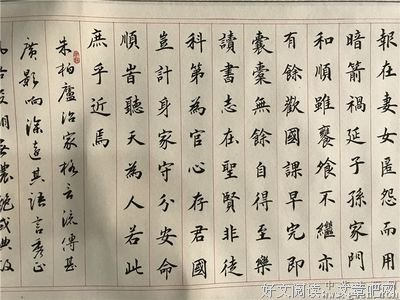 報在妻女匿怨而用
暗箭禍延子孫家門
和順雖饔飧不繼亦
有餘歡國課早完即
囊橐無餘自得至樂
讀書志在聖賢非徒
科第為官心存君國
豈計身家守分安命
順旹聽天為人若此
庶乎近焉
朱柏廬治家格言流傳甚
廣影响深遠其語言
好文阅读
文章吧网